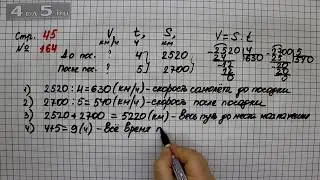 4 по 5 .ru
Стр. 45
№ 164
V, км/ч t, ч S, км
V = S : t
До пос. ? 4 2520
После пос. ? 5 2700
2520 4
24 630
12
12
0
2700 5
25 540
20
20
0
1) 2520 : 4 = 630 (км/ч) - скорость самолёта до посадки
2) 2700 : 5 = 540 (км/ч) - скорость после посадки
3) 2520 + 2700 = 5220 (км) - весь путь до места назначения
4) 4+5 = 9 (ч) - всё время